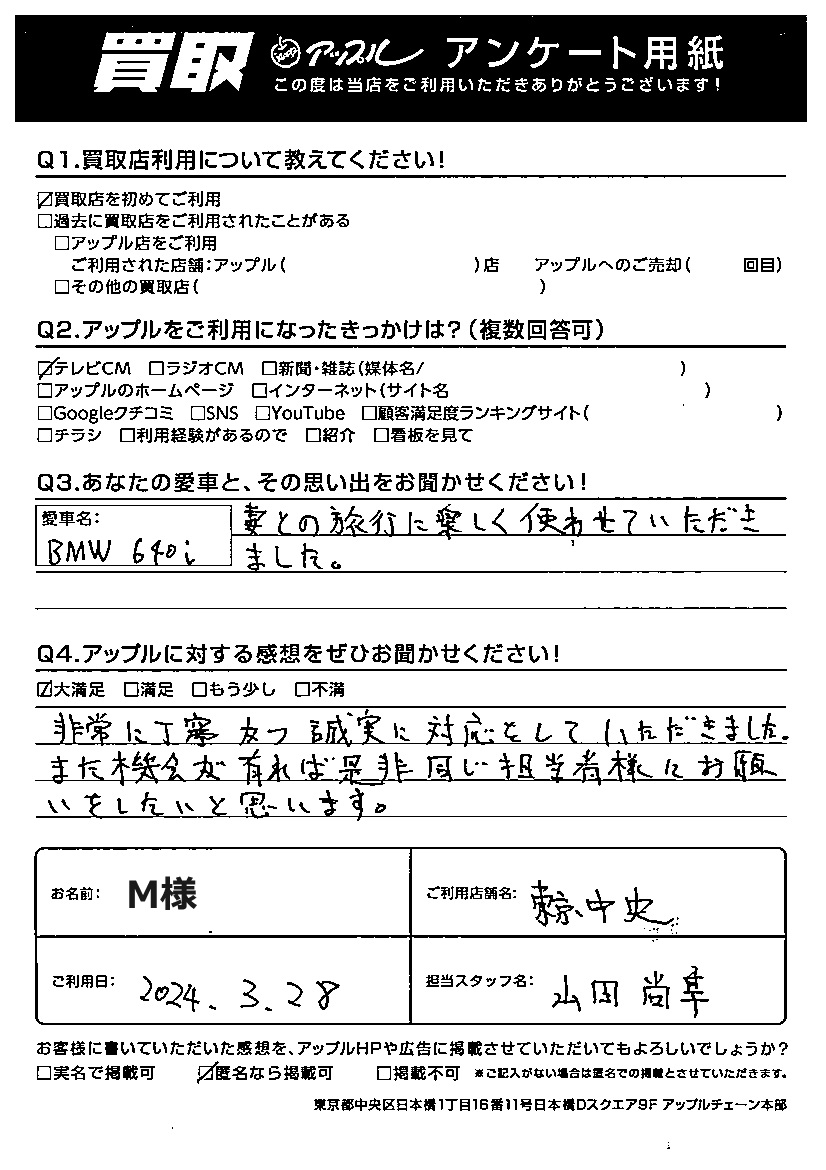 買取 アップル アンケート用紙
この度は当店をご利用いただきありがとうございます!
Q1.買取店利用について教えてください!
☑買取店を初めてご利用
□過去に買取店をご利用されたことがある
□アップル店をご利用
ご利用された店舗:アップル( )店 アップルへのご売却( 回目)
□その他の買取店( )
Q2.アップルをご利用になったきっかけは?(複数回答可)
☑テレビCM □ラジオCM □新聞・雑誌(媒体名/ )
□アップルのホームページ □インターネット(サイト名 )
□Googleクチコミ □SNS □YouTube □顧客満足度ランキングサイト( )
□チラシ □利用経験があるので □紹介 □看板を見て
Q3.あなたの愛車と、その思い出をお聞かせください!
愛車名:
BMW 640i
妻との旅行に楽しく使わせていただき
ました。
Q4.アップルに対する感想をぜひお聞かせください!
☑大満足 □満足 □もう少し □不満
非常に丁寧かつ誠実に対応をしていただきました。
また機会が有れば是非同じ担当者様にお願
いをしたいと思います。
お名前: M様
ご利用店舗名: 東京中央
ご利用日: 2024.3.28
担当スタッフ名: 山田尚
お客様に書いていただいた感想を、アップルHPや広告に掲載させていただいてもよろしいでしょうか?
□実名で掲載可 ☑匿名なら掲載可 □掲載不可 ※ご記入がない場合は匿名での掲載とさせていただきます。
東京都中央区日本橋1丁目16番11号日本橋Dスクエア9F アップルチェーン本部